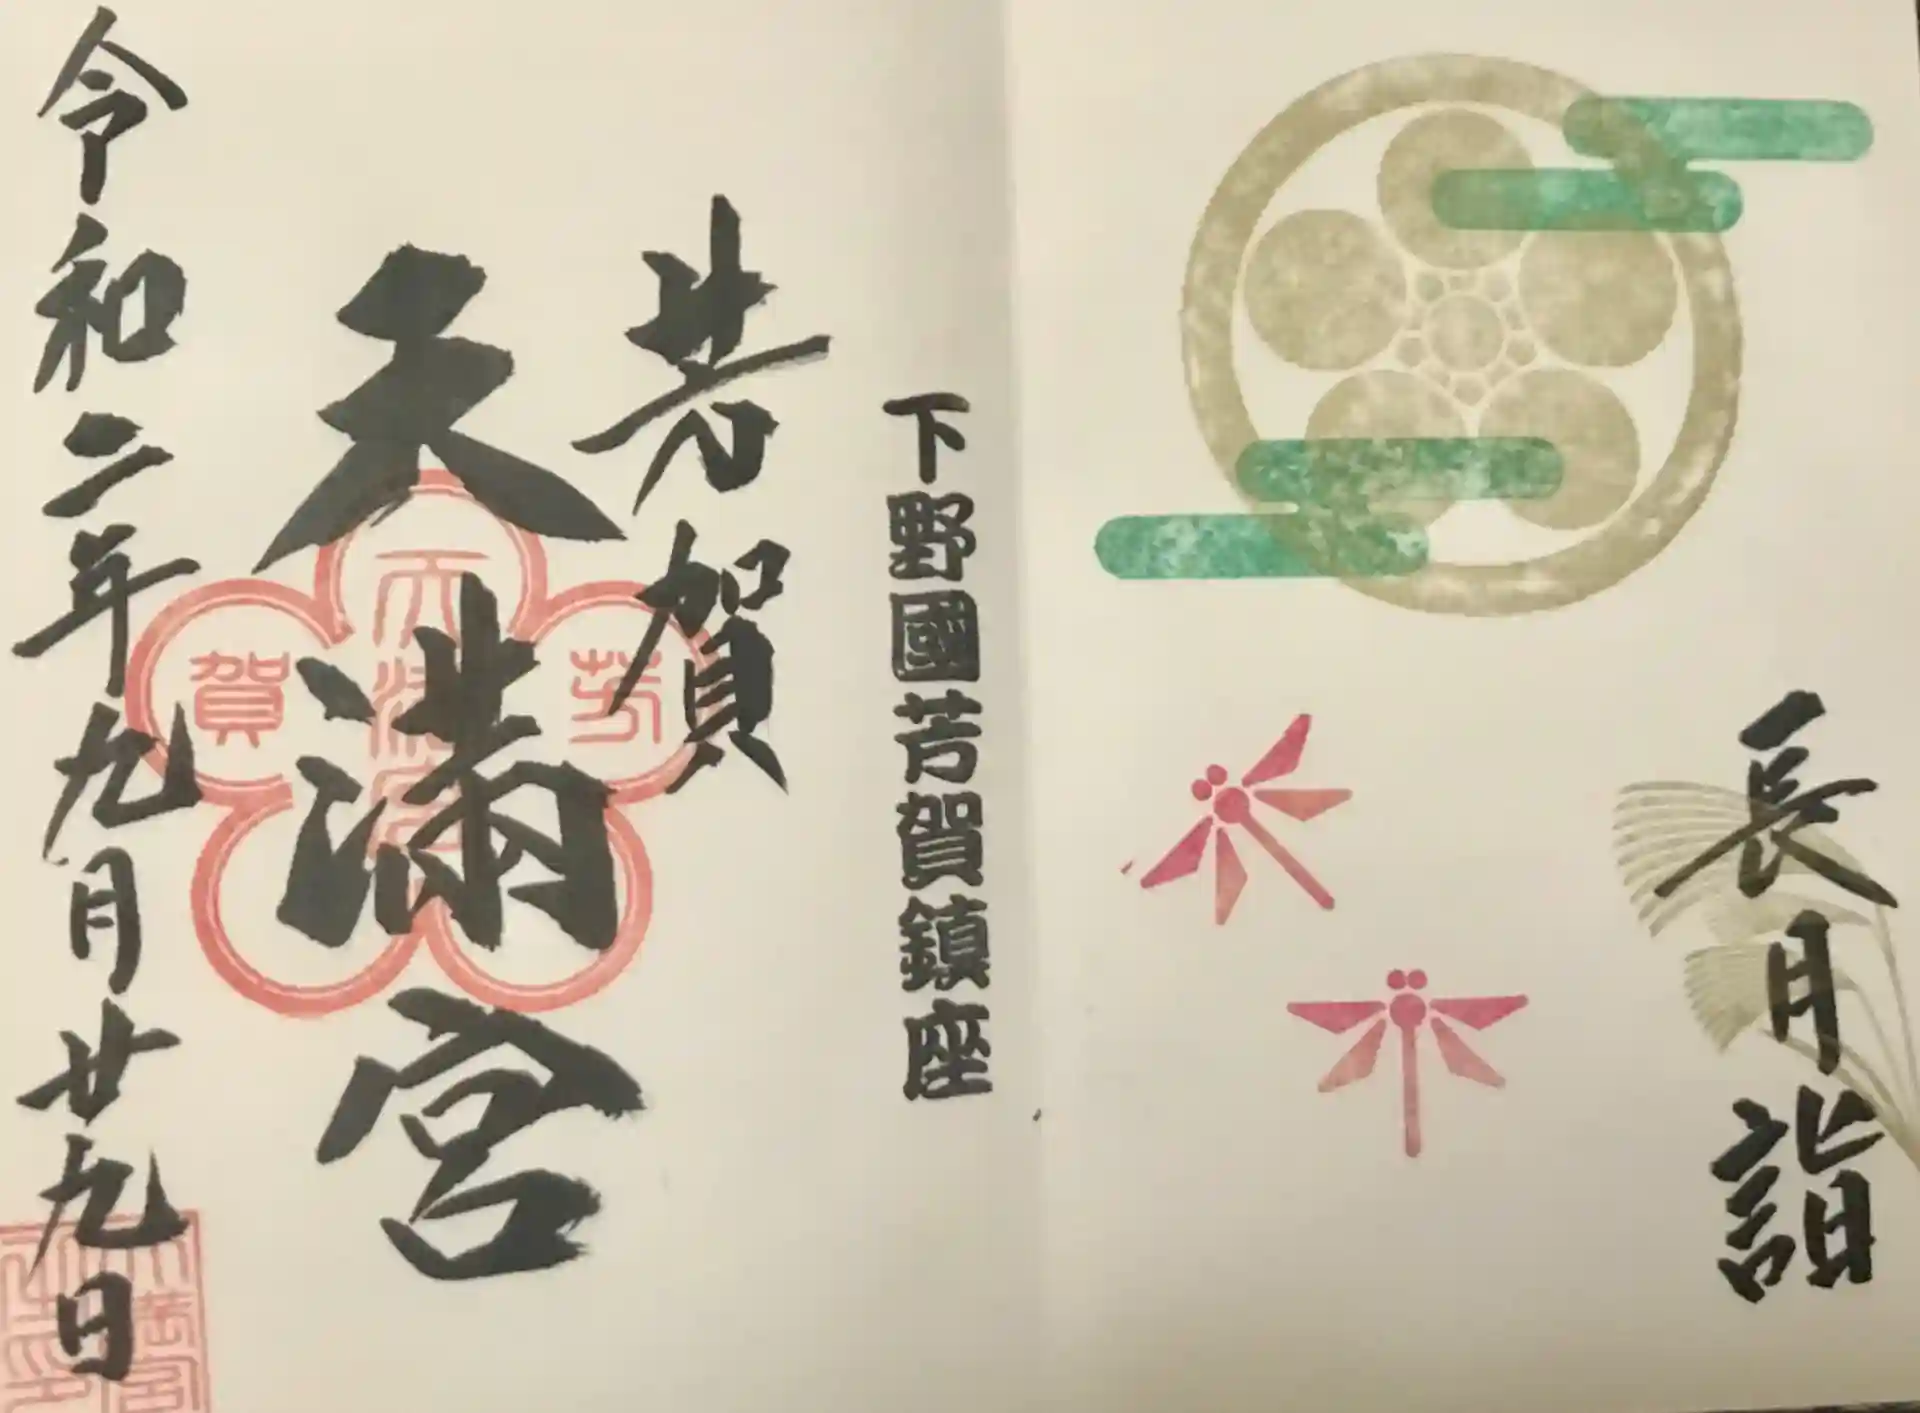 長月詣
下野國芳賀鎮座
芳賀
天満宮
令和二年九月廿九日
芳
賀